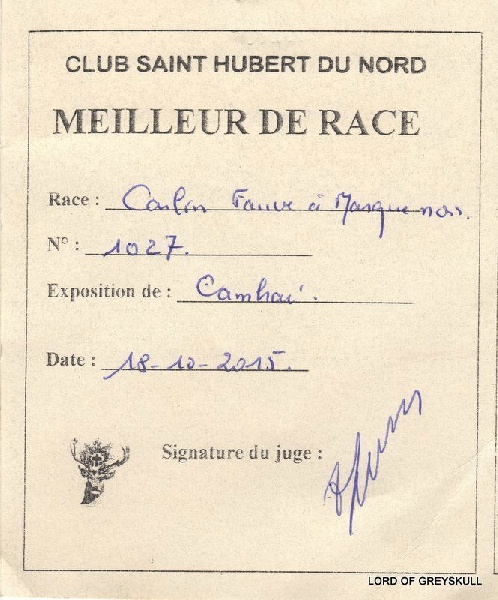 CLUB SAINT HUBERT DU NORD
MEILLEUR DE RACE
Race : Carlin Fauve à Masque noir.
N° : 1027.
Exposition de : Cambrai.
Date : 18-10-2015.
Signature du juge :
LORD OF GREYSKULL